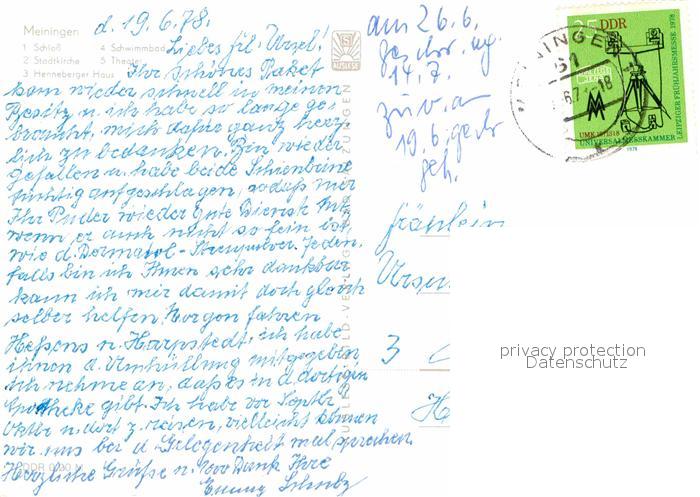 Meiningen
1 Schloß 4 Schwimmbad
2 Stadtkirche 5 Theater
3 Henneberger Haus
d. 19.6.78.
Liebes frl. Ursel!
Ihr schönes Paket
kam wieder schnell in meinen
Besitz u. ich habe so lange ge-
braucht, mich dafür ganz herz-
lich zu bedanken. Bin wieder
gefallen u. habe beide Schienbeine
tüchtig aufgeschlagen, sodaß mir
Ihr Puder wieder gute Dienste tut,
wenn er auch nicht so fein ist,
wie d. Dermatol-Streupulver. Jeden-
falls bin ich Ihnen sehr dankbar
kann ich mir damit doch gleich
selber helfen. Morgen fahren
n. Harpstedt, ich habe
ihnen d. Umhüllung mitgegeben
ich nehme an, daß es in d. dortigen
Apotheke gibt. Ich habe vor Septbr.
Oktbr n. dort z. reisen, vielleicht können
wir uns bei d. Gelegenheit mal sprechen.
Herzliche Grüße u. 1000 Dank Ihre
Emmy
am 26.6.
14.7.
19.6.
geh.
Fräulein
3
35 DDR
MEININGEN
61
UNIVERSALMESSKAMMER
LEIPZIGER FRÜHJAHRSMESSE 1978
1978
privacy protection
Datenschutz